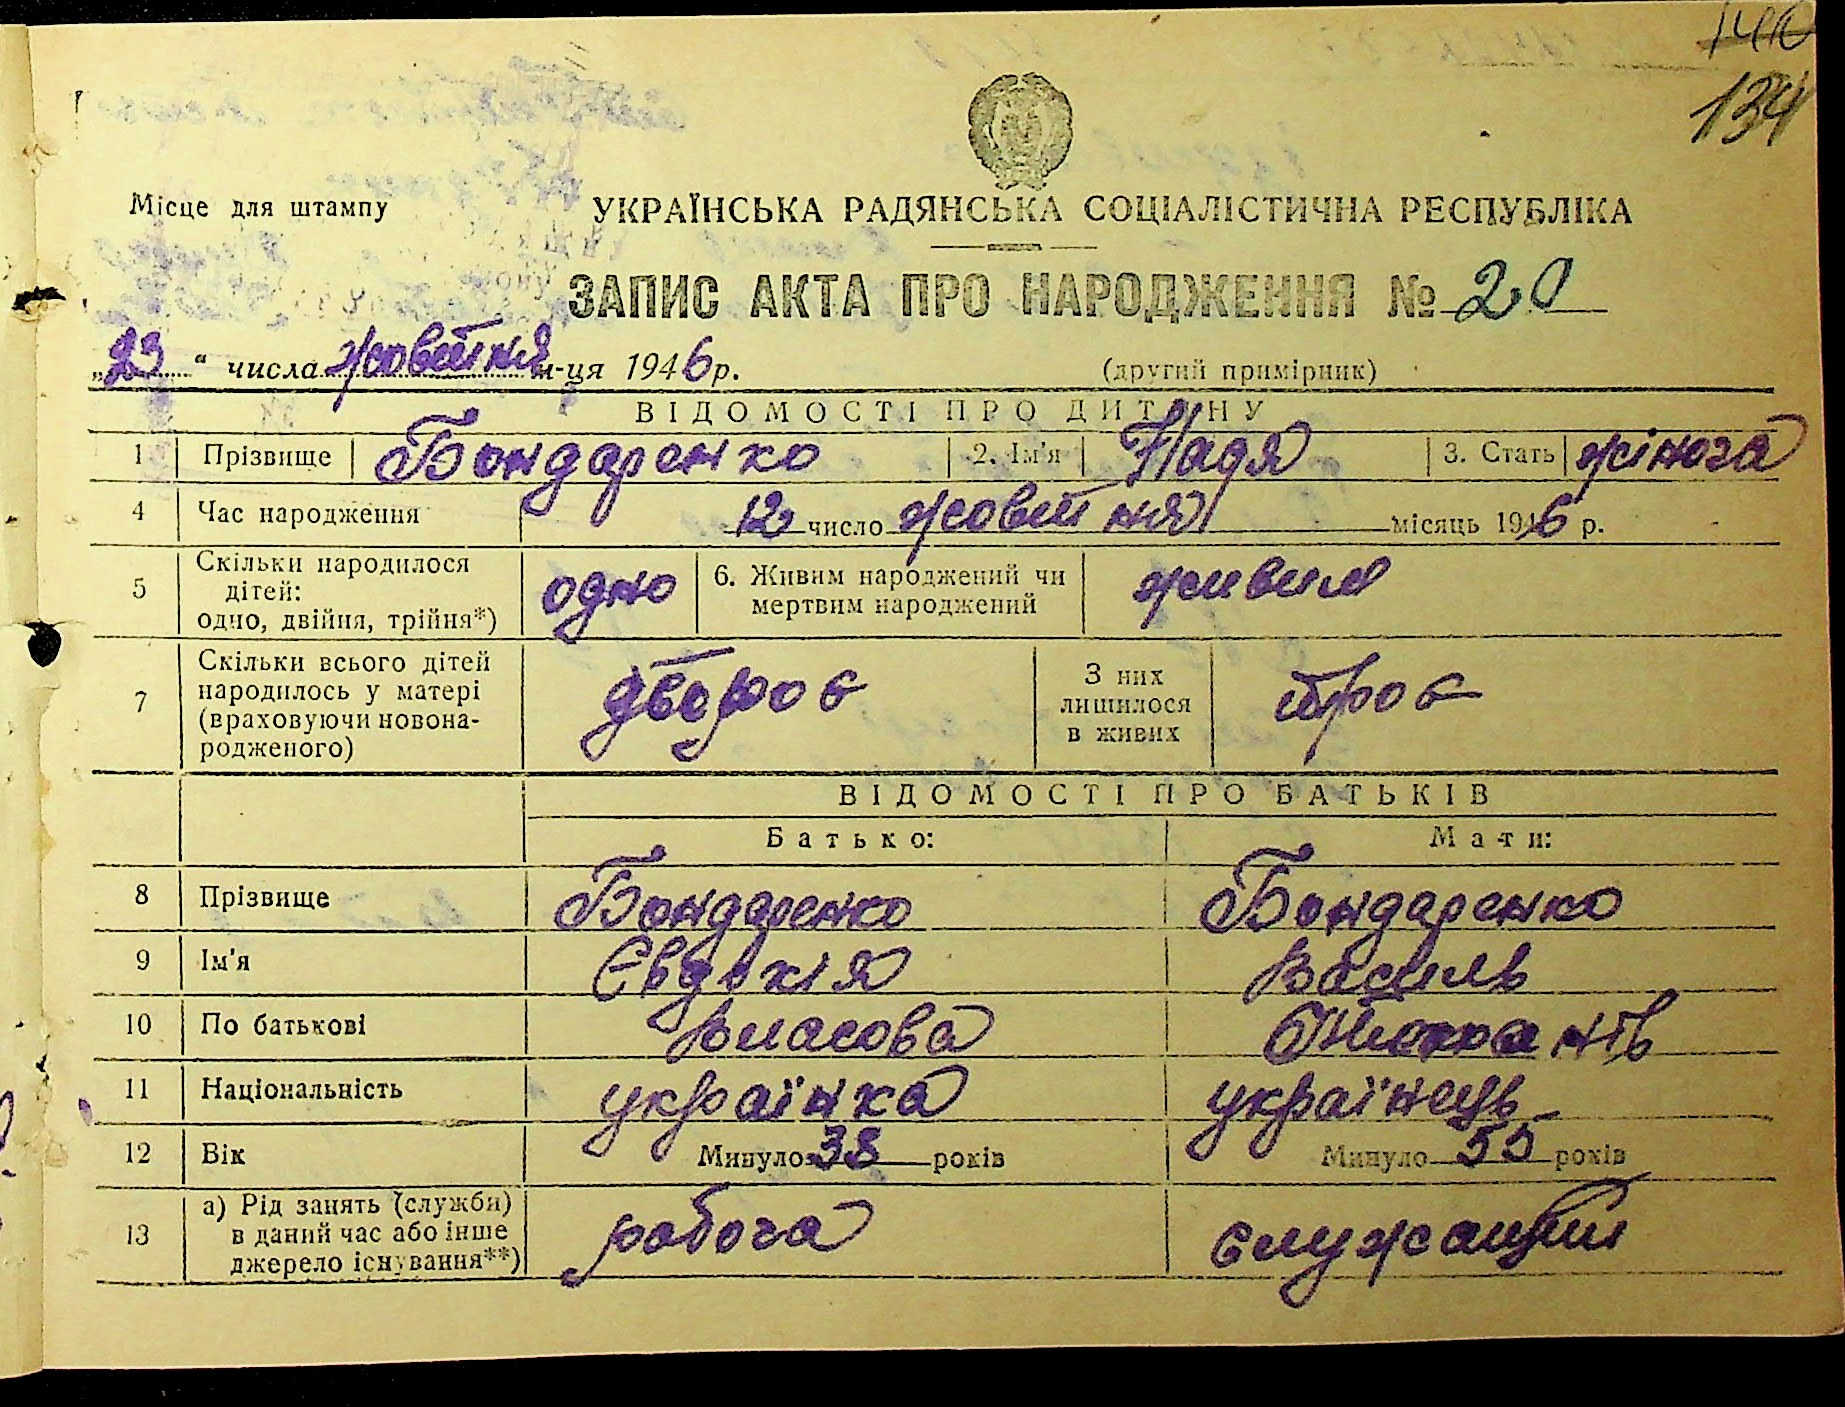 140
134
Місце для штампу
УКРАЇНСЬКА РАДЯНСЬКА СОЦІАЛІСТИЧНА РЕСПУБЛІКА
ЗАПИС АКТА ПРО НАРОДЖЕННЯ № 20
„23“ числа жовтня м-ця 1946 р. (другий примірник)
ВІДОМОСТІ ПРО ДИТИНУ
1 Прізвище Бондаренко 2. Ім'я Надя 3. Стать жіноча
4 Час народження 12 число жовтня місяць 1946 р.
5 Скільки народилося дітей: одно, двійня, трійня*) одно 6. Живим народжений чи мертвим народжений живим
7 Скільки всього дітей народилось у матері (враховуючи новонародженого) двероє З них лишилося в живих троє
ВІДОМОСТІ ПРО БАТЬКІВ
Батько: Мати:
8 Прізвище Бондаренко Бондаренко
9 Ім'я Євдокія Василь
10 По батькові Власова
11 Національність українка українець
12 Вік Минуло 38 років Минуло 55 років
13 а) Рід занять (служби) в даний час або інше джерело існування**) робоча служащий